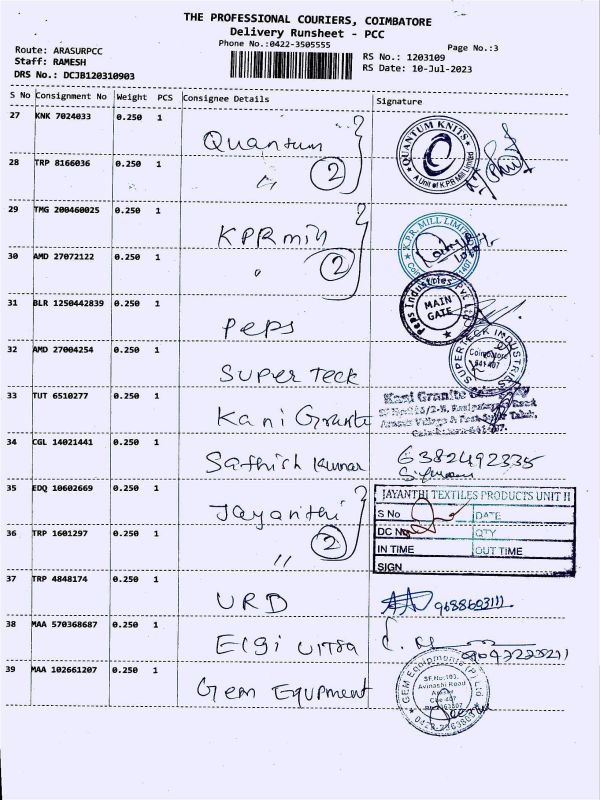 THE PROFESSIONAL COURIERS, COIMBATORE
Delivery Runsheet - PCC
Phone No.:0422-3505555
Page No.:3
Route: ARASURPCC
RS No.: 1203109
Staff: RAMESH
RS Date: 10-Jul-2023
DRS No.: DCJB120310903
S No Consignment No Weight PCS Consignee Details Signature
27 KNK 7024033 0.250 1 Quantum
QUANTUM KNITS
A Unit of K.P.R Mill Limited
28 TRP 8166036 0.250 1 " 2
29 TMG 200460025 0.250 1 KPR mill
K.P.R. MILL LIMITED
30 AMD 27072122 0.250 1 " 2
31 BLR 1250442839 0.250 1 Peps
Peps Industries Pvt Ltd
MAIN
GATE
32 AMD 27004254 0.250 1 Super Teck
SUPERTECK INDUSTRIES
Coimbatore
641 407
33 TUT 6510277 0.250 1 Kani Granite
Kani Granite Company
34 CGL 14021441 0.250 1 Sathish Kumar 6382492335
35 EDQ 10602669 0.250 1 Jayanthi 2
JAYANTHI TEXTILES PRODUCTS UNIT II
S No DATE
DC No QTY
IN TIME OUT TIME
SIGN
36 TRP 1601297 0.250 1 "
37 TRP 4848174 0.250 1 URD 9688603111
38 MAA 570368687 0.250 1 Elgi Ultra
39 MAA 102661207 0.250 1 Gem Equpment
GEM Equipments (P) Ltd
SF.No:103,
Avinashi Road
Arasur
Cbe-407